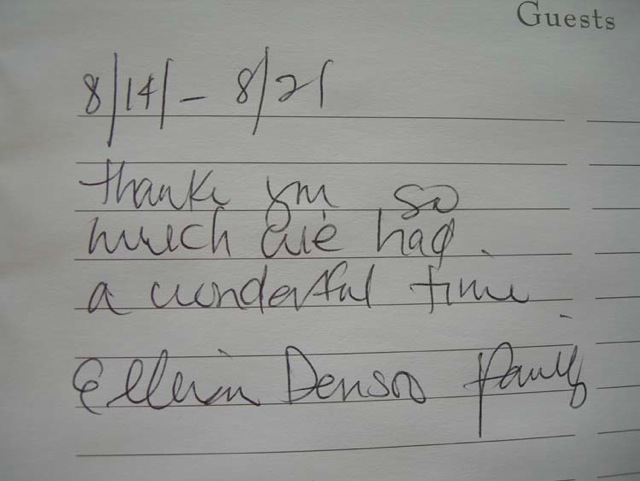 Guests
8/14 - 8/21
Thank you so
much we had
a wonderful time
family